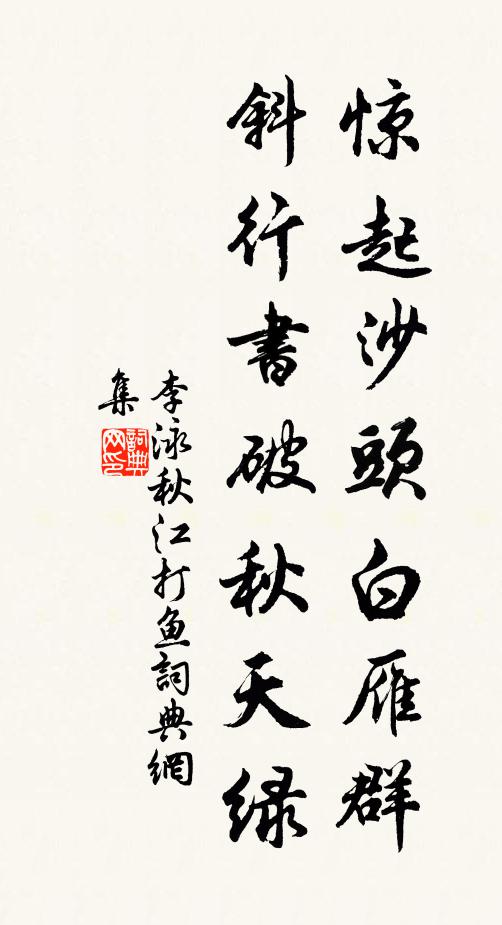 惊起沙頭白雁群
斜行書破秋天绿
李泳秋江打鱼詞典網
集
詞典
网印